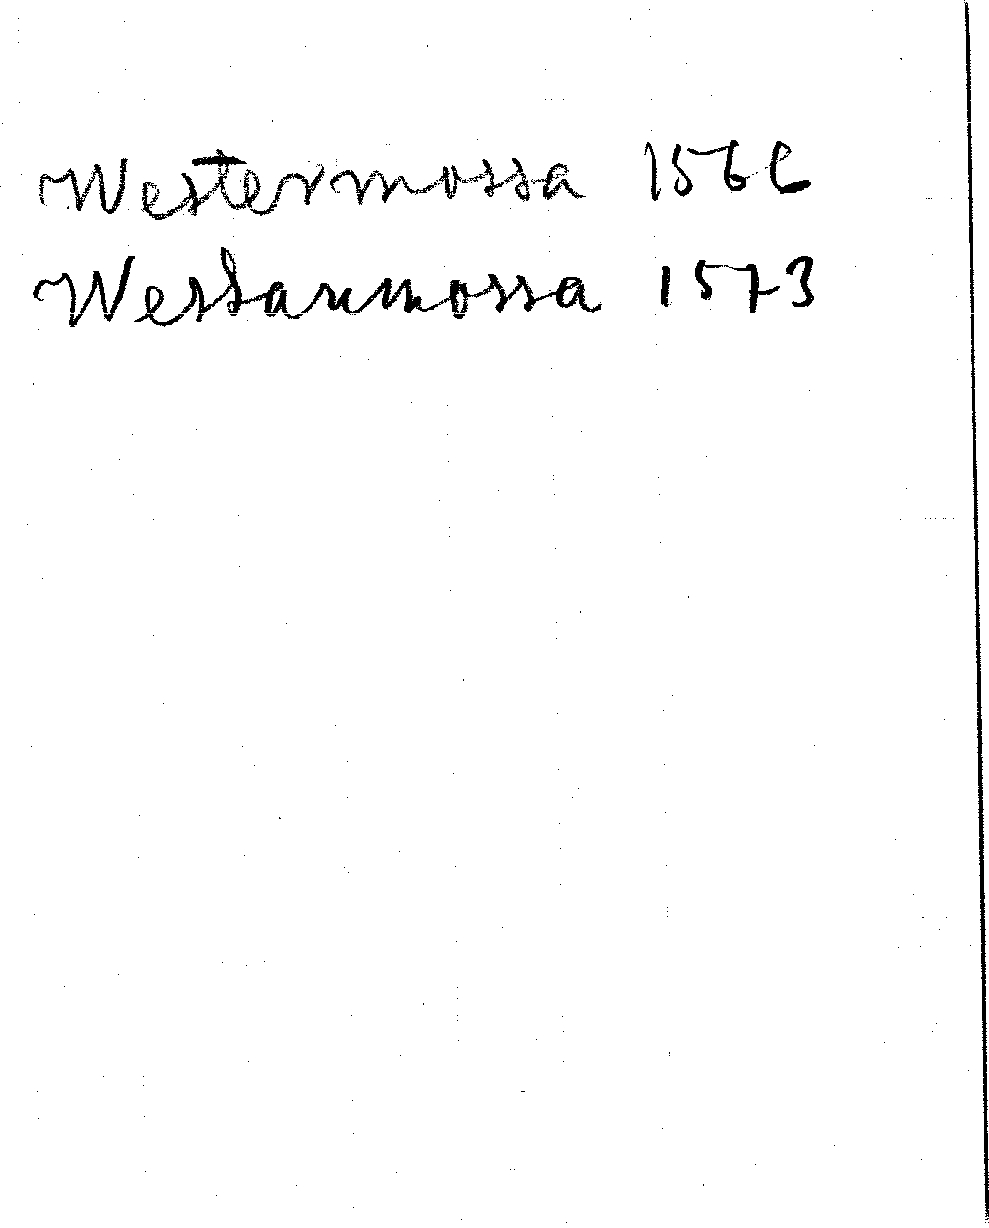 Westermossa 1566
Vestanmossa 1573